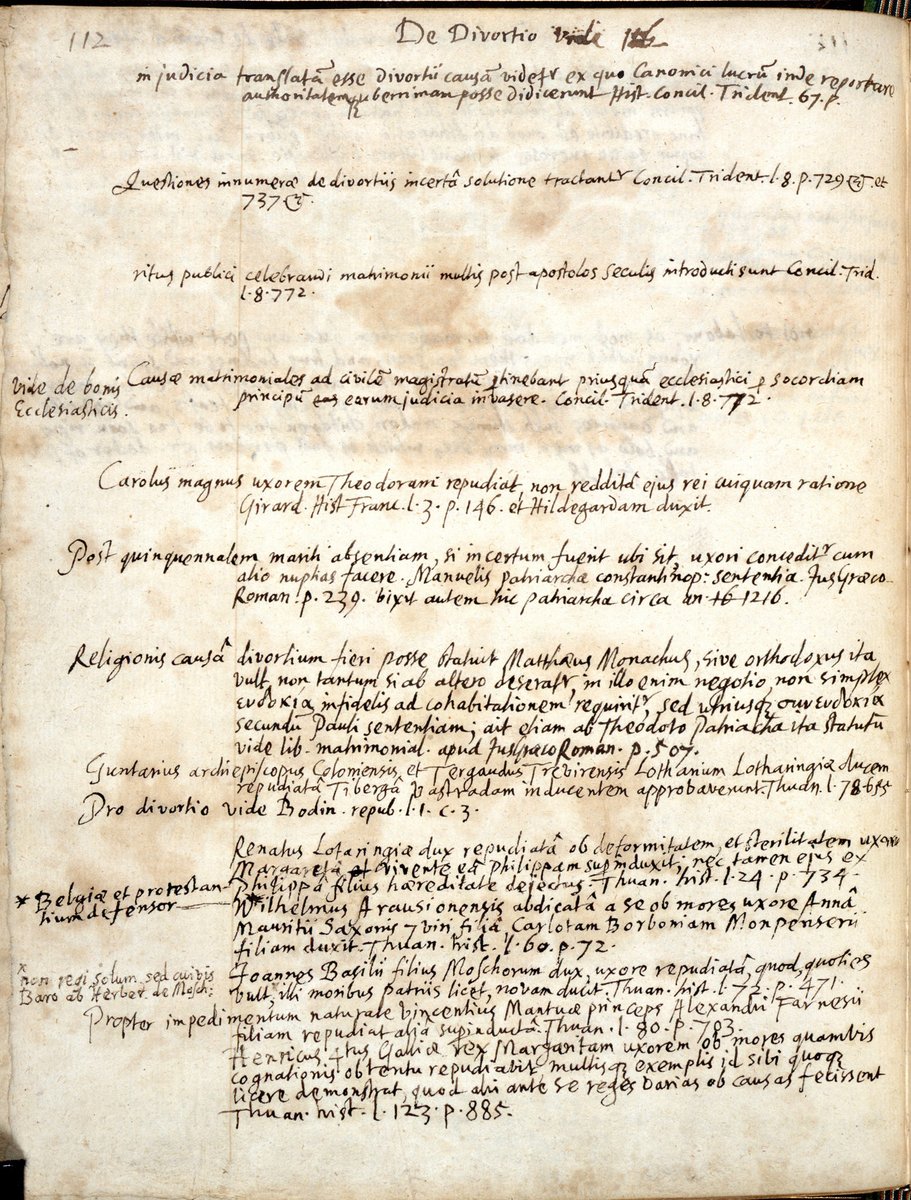 112 De Divortio vide 116
in judicia translatā esse divortii causā videtr ex quo Canonici lucrū inde reportare
authoritatemq uberrimam posse didicerunt Hist. Concil. Trident. 67. p.
Quæstiones innumeræ de divortiis incertâ solutione tractantr Concil. Trident. l. 8. p. 729 &c. et
737 &c.
ritus publici celebrandi matrimonii multis post apostolos seculis introducti sunt Concil. Trid.
l. 8. 772.
vide de bonis
Ecclesiasticis.
Causæ matrimoniales ad civilē magistratū ptinebant priusquā ecclesiastici p socordiam
principū eas earum judicia invasere. Concil. Trident. l. 8. 772.
Carolus magnus uxorem Theodoram repudiat, non redditâ ejus rei cuiquam ratione
Girard. Hist Franc. l. 3. p. 146. et Hildegardam duxit.
Post quinquennalem mariti absentiam, si incertum fuerit ubi sit, uxori conceditr cum
alio nuptias facere. Manuelis patriarchæ constantinop: sententia. Jus Græco-
Roman. p. 239. vixit autem hic Patriarcha circa an. 16 1216.
Religionis causâ divortium fieri posse statuit Matthæus Monachus, sive orthodoxus ita
vult, non tantum si ab altero deseratr, in illo enim negotio, non simplex
ευδοκία infidelis ad cohabitationem requiritr, sed utriusq συνευδοκία
secundū Pauli sententiam; ait etiam ab Theodoto Patriarcha ita statutū
vide lib. matrimonial. apud Jus Græco Roman. p. 507.
Guntarius archiepiscopus Coloniensis et Tergaudus Trevirensis Lotharium Lotharingiæ ducem
repudiatâ Tibergâ Valstradam inducentem approbaverunt. Thuan. l. 78. 655
Pro divortio vide Bodin. repub. l. 1. c. 3.
Renatus Lotaringiæ dux repudiatâ ob deformitatem, et sterilitatem uxore
Margaretâ et vivente eâ Philippam supinduxit; nec tamen ejus ex
Philippâ filius hæreditate dejectus. Thuan. hist. l. 24. p. 734.
* Belgiæ et protestan-
tium defensor
* Wilhelmus Arausionensis abdicatâ a se ob mores uxore Annâ
Mauritii Saxonis 7 viri filiâ, Carlotam Borboniam Monpenserii
filiam duxit. Thuan. hist. l. 60. p. 72.
* non regi solum, sed cuivis
Baro ab Herber. de Mosch:
Joannes Basilii filius Moschorum dux, uxore repudiatâ, quod, quoties
vult, illi moribus patriis licet, novam ducit Thuan. hist. l. 72. p. 471.
Propter impedimentum naturale Vincentius Mantuæ princeps Alexandri Farnesii
filiam repudiat aliâ supinductâ. Thuan. l. 80. p. 783.
Henricus 4tus Galliæ rex Margaritam uxorem ob mores quamvis
cognationis obtentu repudiavit multisq exemplis id sibi quoq
licere demonstrat, quod alii ante se reges varias ob causas fecissent
Thuan. hist. l. 123. p. 885.